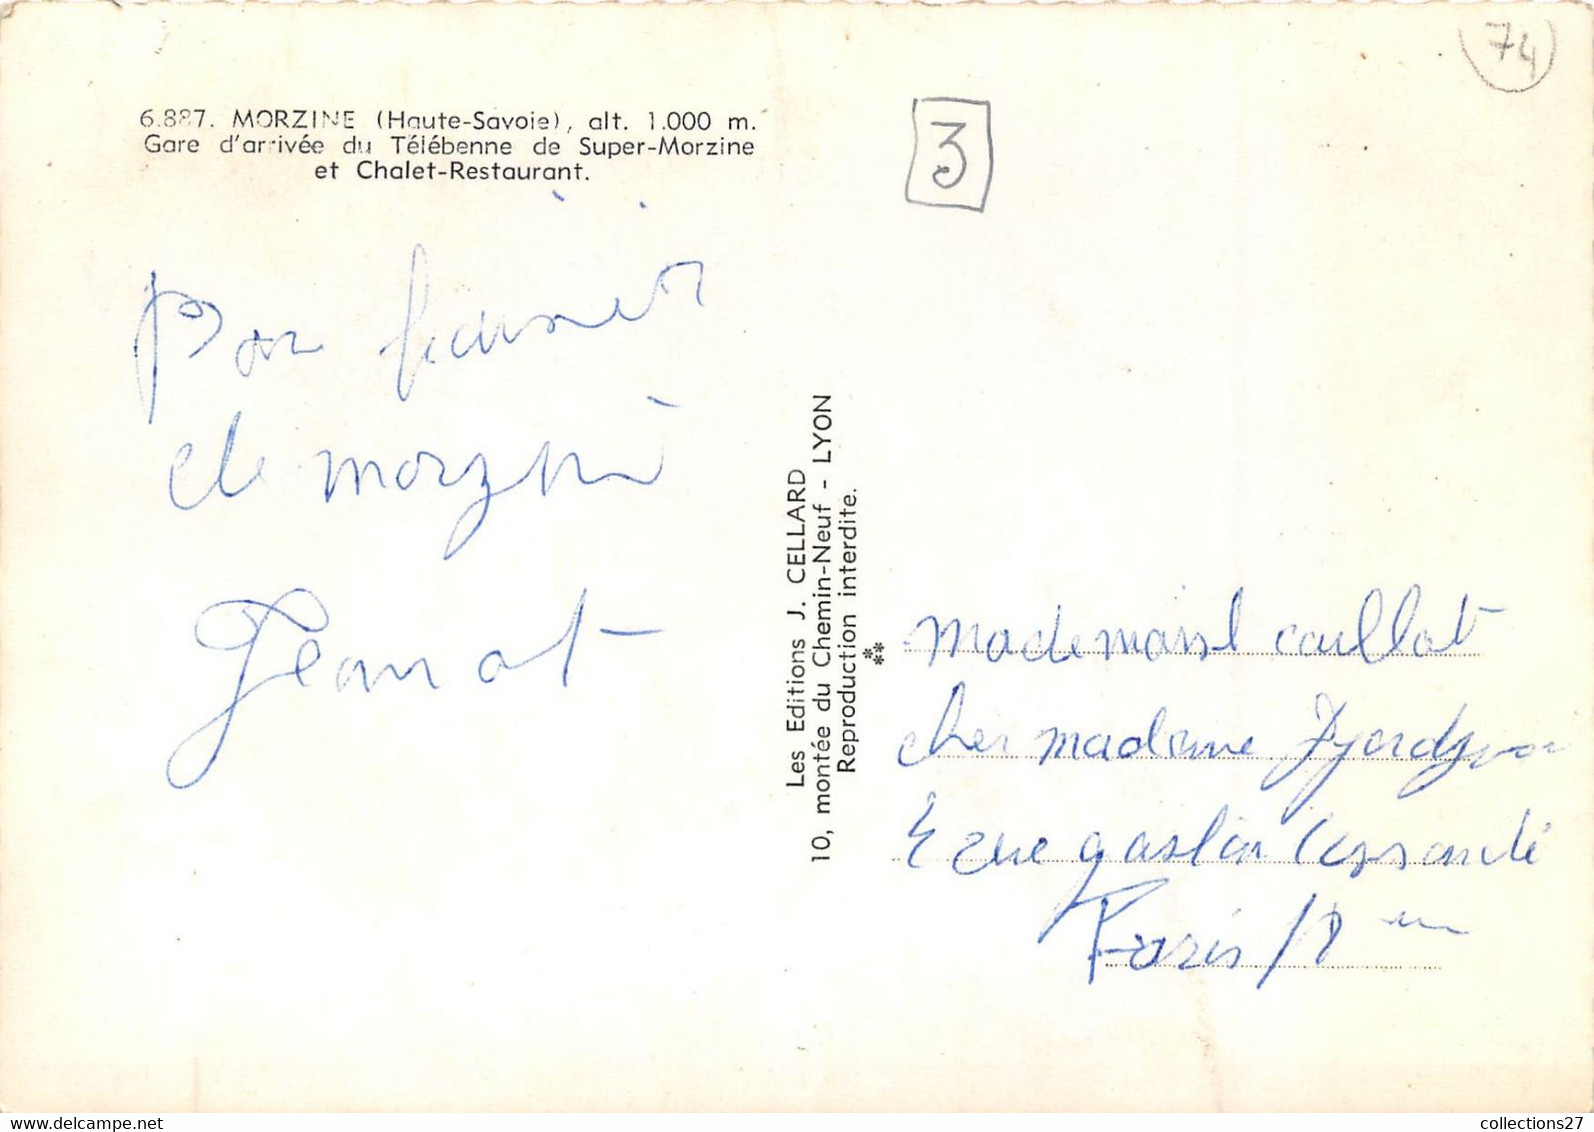 74
6.887. MORZINE (Haute-Savoie), alt. 1.000 m.
Gare d'arrivée du Télébenne de Super-Morzine
et Chalet-Restaurant.
3
Bon baiser
de morzine
Jeanot
Les Editions J. CELLARD
10, montée du Chemin-Neuf - LYON
Reproduction interdite.
Mademoisel caillot
cher madame
rue gaston
Paris
collections27